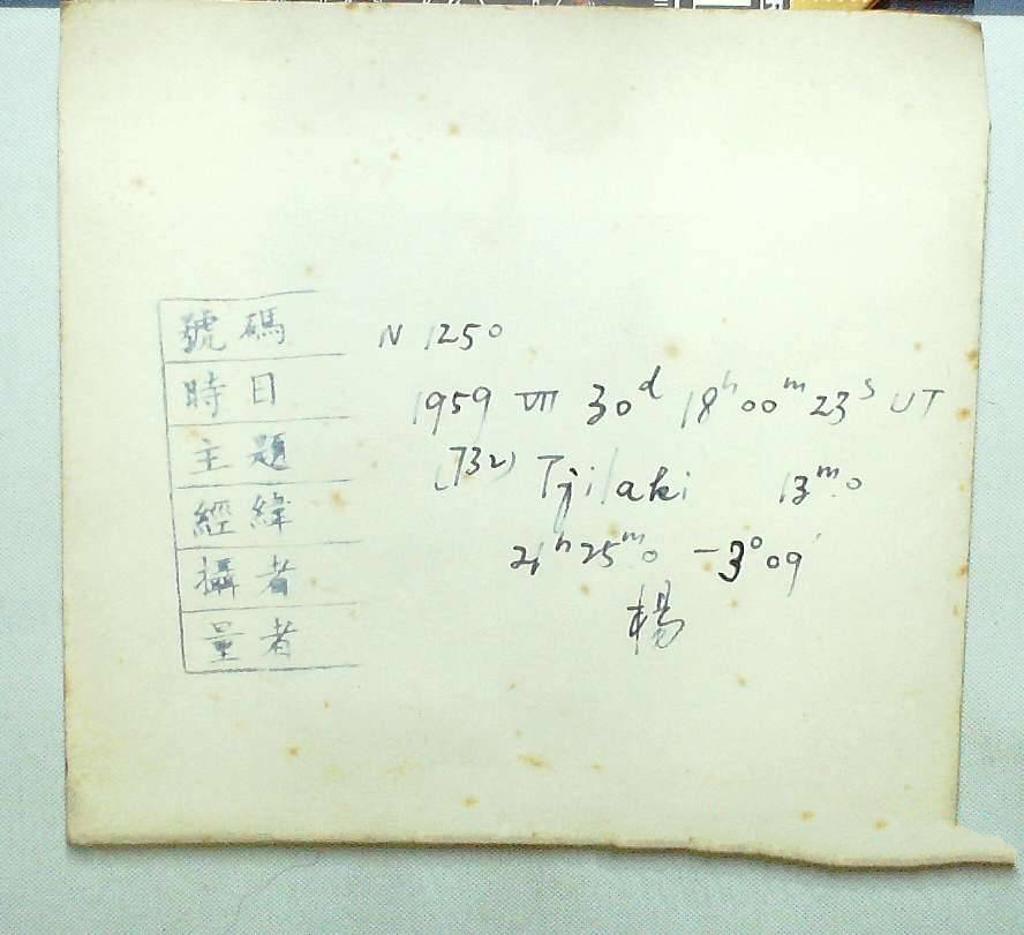 號碼 N 1250
時日 1959 VII 30d 18h00m23s UT
主題 (732) Tjilaki 13m.0
經緯 21h25m.0 -3°09'
攝者 楊
量者